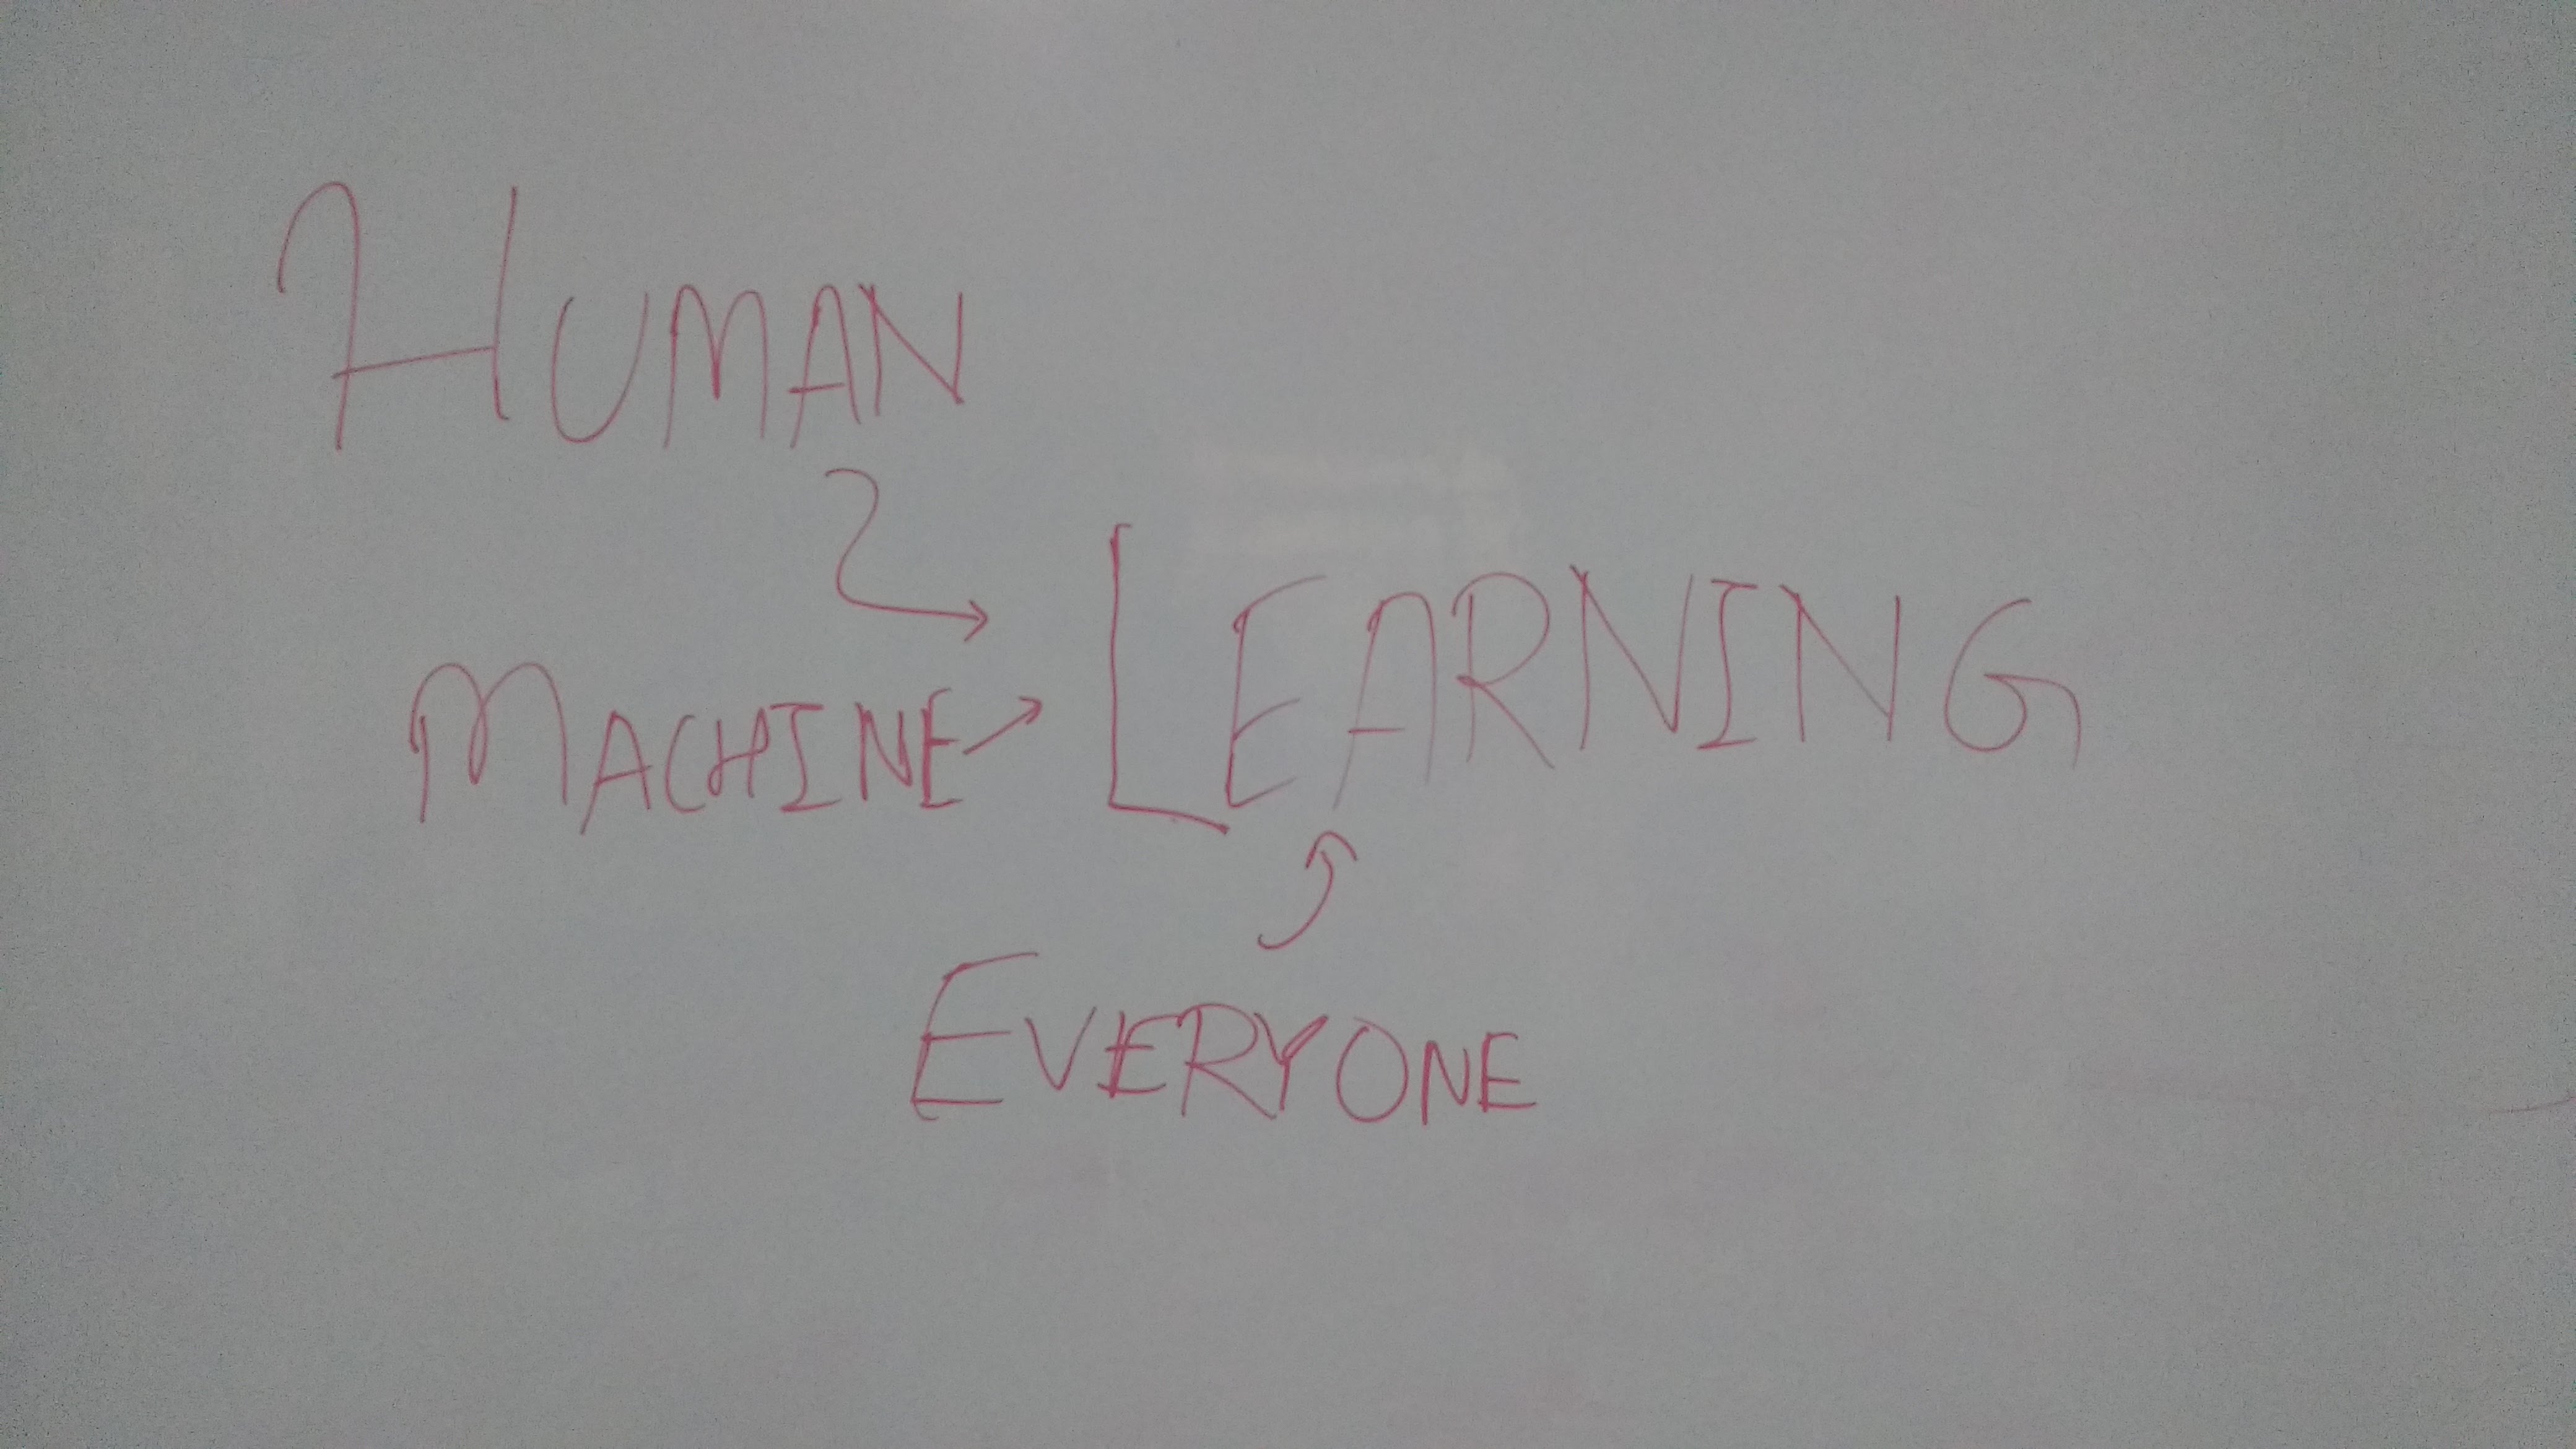 HUMAN
MACHINE → LEARNING
EVERYONE